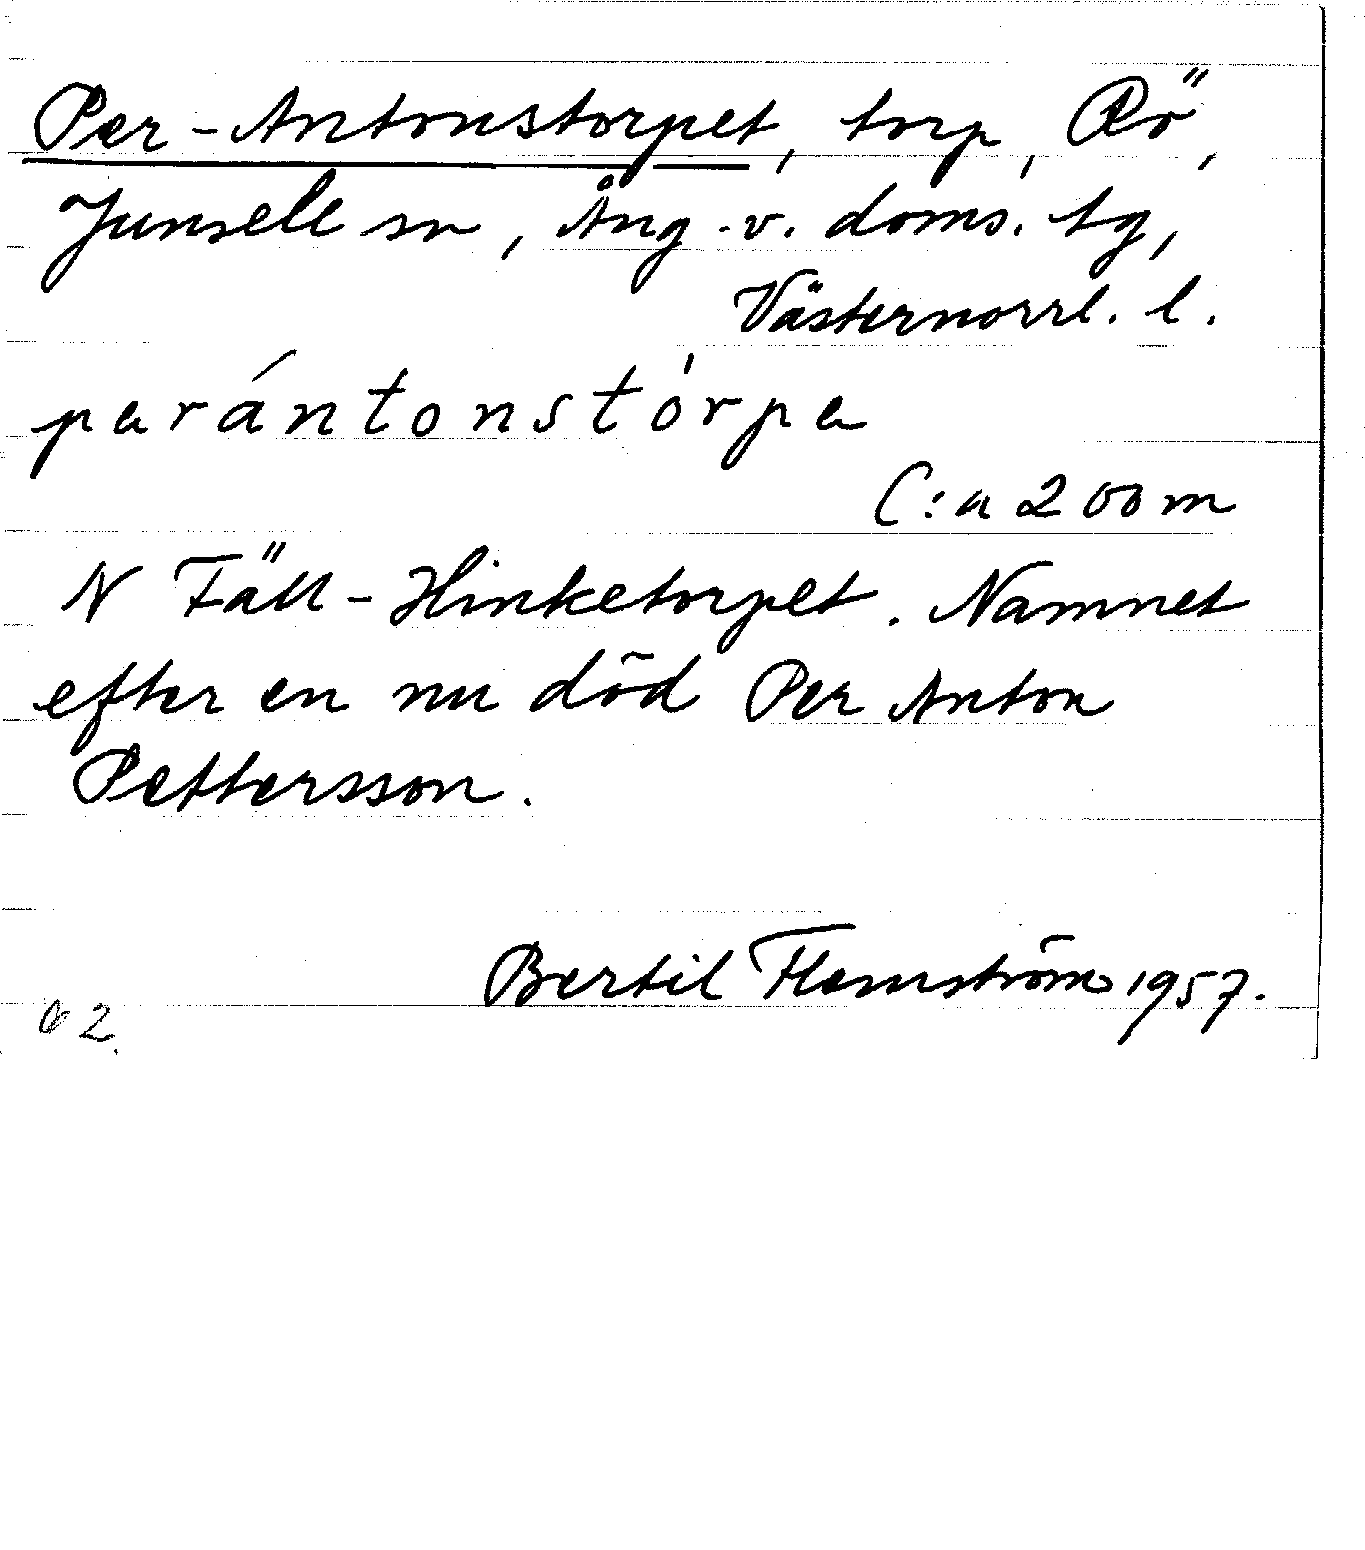 Per-Antonstorpet, torp, Rö,
Junsele sn, Ång. v. doms. tg,
Västernorrl. l.
perántonstórpe
C:a 200 m
N Fäll-Hinketorpet. Namnet
efter en nu död Per Anton
Pettersson.
Bertil Flemström 1957.
2.